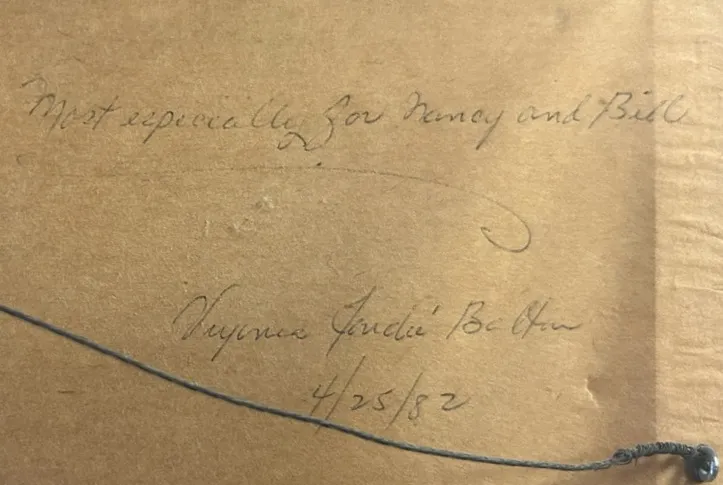 Most especially for Nancy and Bill
Virginia
4/25/82